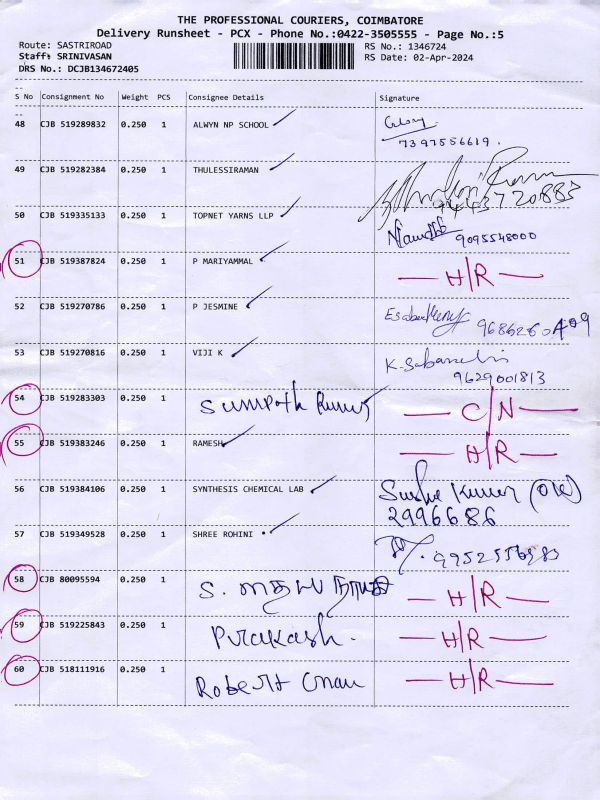 THE PROFESSIONAL COURIERS, COIMBATORE
Delivery Runsheet - PCX - Phone No.:0422-3505555 - Page No.:5
Route: SASTRIROAD RS No.: 1346724
Staff: SRINIVASAN RS Date: 02-Apr-2024
DRS No.: DCJB134672405
S No Consignment No Weight PCS Consignee Details Signature
48 CJB 519289832 0.250 1 ALWYN NP SCHOOL
7397556619.
49 CJB 519282384 0.250 1 THULESSIRAMAN
9443720883
50 CJB 519335133 0.250 1 TOPNET YARNS LLP
9095548000
51 CJB 519387824 0.250 1 P MARIYAMMAL H/R
52 CJB 519270786 0.250 1 P JESMINE
53 CJB 519270816 0.250 1 VIJI K
9629001813
54 CJB 519283303 0.250 1 Sumpath Kumar C/N
55 CJB 519383246 0.250 1 RAMESH H/R
56 CJB 519384106 0.250 1 SYNTHESIS CHEMICAL LAB
2996686
57 CJB 519349528 0.250 1 SHREE ROHINI
58 CJB 80095594 0.250 1 S. H/R
59 CJB 519225843 0.250 1 Prakash. H/R
60 CJB 518111916 0.250 1 Robert H/R